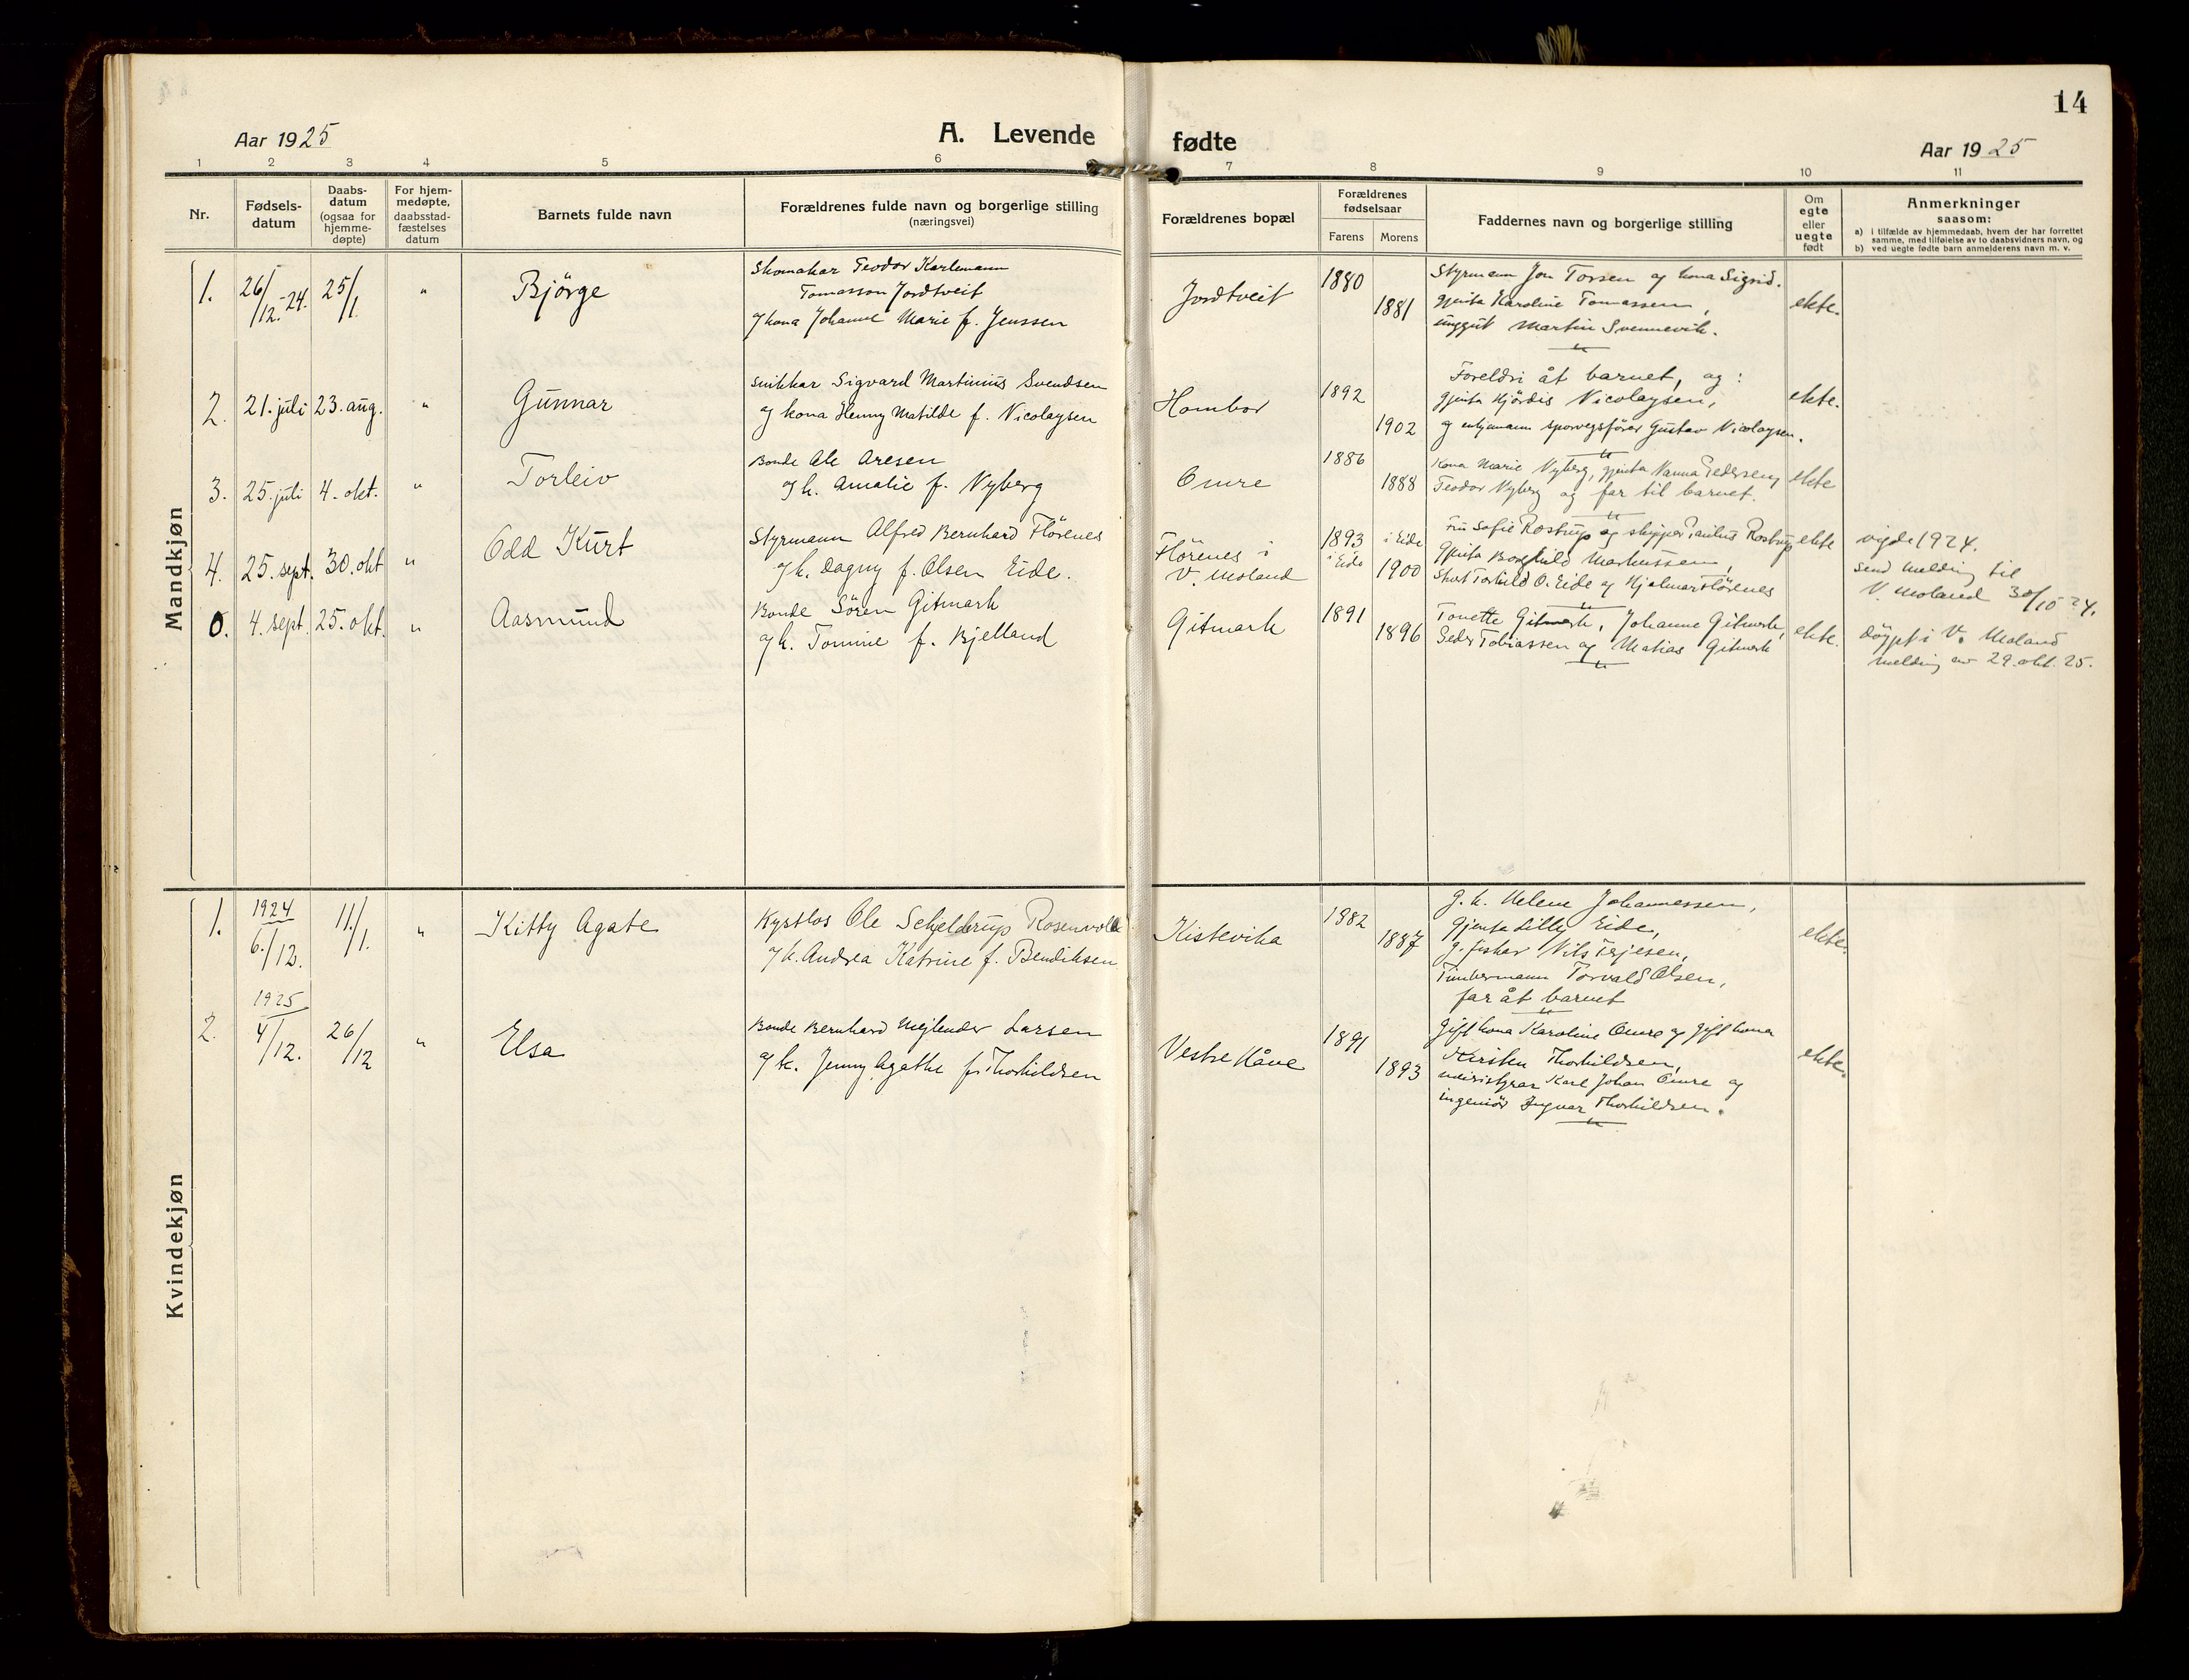 14
Aar 1925
A. Levende fødte
Aar 1925
1 2 3 4 5 6 7 8 9 10 11
Nr.
Fødsels-
datum
Daabs-
datum
(ogsaa for
hjemme-
døpte)
For hjem-
medøpte,
daabsstad-
fæstelses
datum
Barnets fulde navn
Forældrenes fulde navn og borgerlige stilling
(næringsvei)
Forældrenes bopæl
Forældrenes
fødselsaar
Farens Morens
Faddernes navn og borgerlige stilling
Om
egte
eller
uegte
født
Anmerkninger
saasom:
a) i tilfælde av hjemmedaab, hvem der har forrettet
samme, med tilføielse av to daabsvidners navn, og
b) ved uegte fødte barn anmelderens navn m. v.
Mandkjøn
1. 26/12.-24. 25/1. " Bjørge
Skomakar Teodor Karlemann
Tomasson Jordtveit
og kona Johanne Marie f. Jenssen
Jordtveit
1880
1881
Styrmann Jon Torsen og kona Sigrid.
gjenta Karoline Tomassen,
unggut Martin Svennevik.
ekte.
2. 21. juli 23. aug. " Gunnar
Snikkar Sigvard Martinius Svendsen
og kona Henny Matilde f. Nicolaysen
Hombor
1892
1902
Foreldri åt barnet, og:
gjenta Hjördis Nicolaysen,
og enkjemann sporvegsförer Gustav Nicolaysen.
ekte.
3. 25. juli 4. okt. " Torleiv
Bonde Ole Aresen
og k. Amalie f. Nyberg
Omre
1886
1888
Kona Marie Nyberg, gjenta Nanna Pedersen,
Teodor Nyberg og far til barnet.
ekte
4. 25. sept. 30. okt " Odd Kurt
Styrmann Alfred Bernhard Flörenes
og k. Dagny f. Olsen Eide.
Flörenes i
V. Moland
1893 i Eide
i Eide 1900
Fru Sofie Rostrup og skipper Paulus Rostrup
Gjenta Borghild Markussen,
Torkild O. Eide og Hjalmar Flörenes
ekte
vigde 1924.
Send melding til
V. Moland 30/10 24.
0. 4. sept. 25. okt. " Aasmund
Bonde Sören Gitmark
og k. Tomine f. Bjelland
Gitmark
1891
1896
Tonette Gitmark, Johanne Gitmark,
Peder Tobiassen og Matias Gitmark
ekte.
döypt i V. Moland
melding av 29. okt. 25.
Kvindekjøn
1. 1924
6./12. 11./1. " Kitty Agate
Kyrtlos Ole Schjelderup Rosenvold
og k. Andrea Katrine f. Bendiksen
Kistevika
1882
1887
g. k. Helene Johannessen,
Gjenta Lilly Eide,
g. fiskar Nils Terjesen,
Timbermann Torvald Olsen,
far åt barnet
ekte.
2. 1925
4/12. 26/12 " Elsa
Bonde Bernhard Mejlender Larsen
og k. Jenny Agathe f. Thorkildsen
Vestre Kåve
1891
1893
Gift kona Karoline Omre og gift kona
Kirsten Thorkildsen,
meieristyrar Karl Johan Omre og
ingeniör Ingvar Thorkildsen.
ekte.